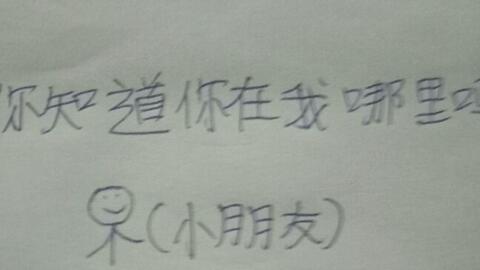 你知道你在我哪里吗
(小朋友)